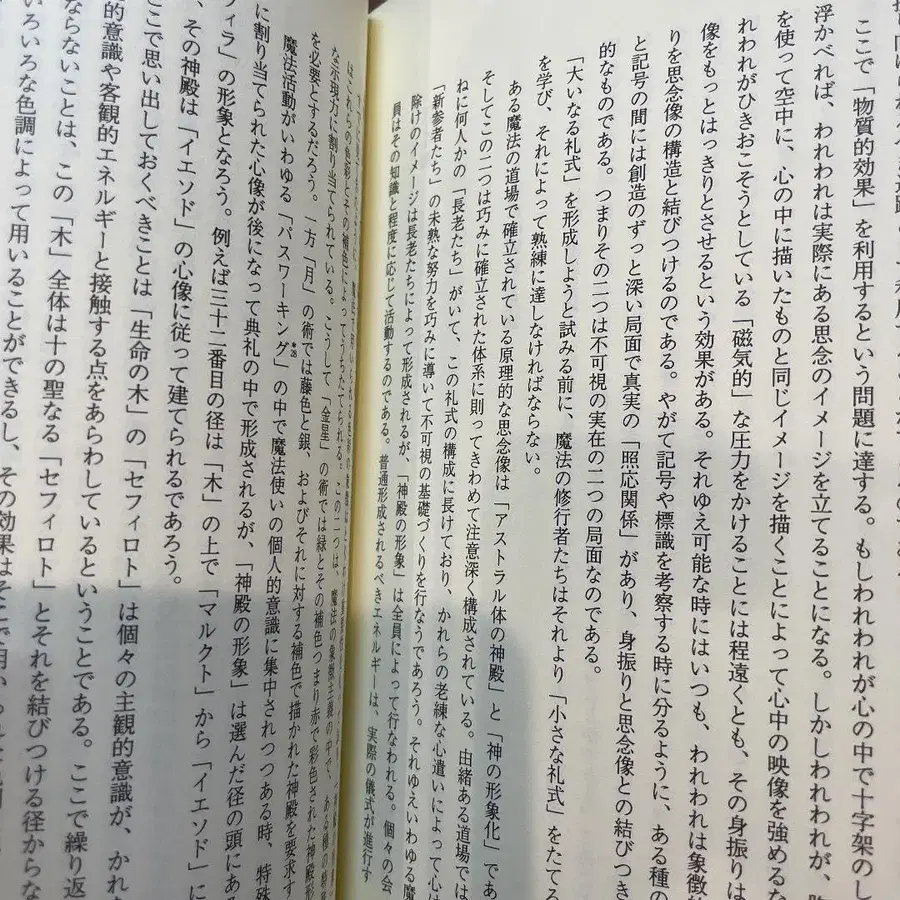 ここで「物質的効果」を利用するという問題に達する。もしわれわれが心の中で十字架のし
浮かべれば、われわれは実際にある思念のイメージを立てることになる。しかしわれわれが、
を使って空中に、心の中に描いたものと同じイメージを描くことによって心中の映像を強めるな
れわれがひきおこそうとしている「磁気的」な圧力をかけることには程遠くとも、その身振りは
像をもっとはっきりとさせるという効果がある。それゆえ可能な時にはいつも、われわれは象徴的
りを思念像の構造と結びつけるのである。やがて記号や標識を考察する時に分るように、ある種の
と記号の間には創造のずっと深い局面で真実の「照応関係」があり、身振りと思念像との結びつき
的なものである。つまりその二つは不可視の実在の二つの局面なのである。
「大いなる礼式」を形成しようと試みる前に、魔法の修行者たちはそれより「小さな礼式」をたてる
を学び、それによって熟練に達しなければならない。
ある魔法の道場で確立されている原理的な思念像は「アストラル体の神殿」と「神の形象化」であ
そしてこの二つは巧みに確立された体系に則ってきわめて注意深く構成されている。由緒ある道場では
ねに何人かの「長老たち」がいて、この礼式の構成に長けており、かれらの老練な心遣いによって心
「新参者たち」の未熟な努力を巧みに導いて不可視の基礎づくりを行なうであろう。それゆえいわゆる魔
除けのイメージは長老たちによって形成されるが、「神殿の形象」は全員によって行なわれる。個々の会
員はその知識と程度に応じて活動するのである。普通形成されるべきエネルギーは、実際の儀式が進行す
はこれらの色彩とその補色によってうちたてられる。この二つは、魔法の象徴主義の中で、ある種の特
な示現力に割り当てられている。こうして「金星」の術では緑とその補色つまり赤で彩色された神殿形
を必要とするだろう。一方「月」の術では藤色と銀、およびそれに対する補色で描かれた神殿を要求す
魔法活動がいわゆる「パスワーキング*28」の中で魔法使いの個人的意識に集中されつつある時、特殊
に割り当てられた心像が後になって典礼の中で形成されるが、「神殿の形象」は選んだ径の頭にあ
フィラ」の形象となろう。例えば三十二番目の径は「木」の上で「マルクト」から「イエソド」に
、その神殿は「イエソド」の心像に従って建てられるであろう。
ここで思い出しておくべきことは「生命の木」の「セフィロト」は個々の主観的意識が、かれ
的意識や客観的エネルギーと接触する点をあらわしているということである。ここで繰り返
ならないことは、この「木」全体は十の聖なる「セフィロト」とそれを結びつける径からな
いろいろな色調によって用いることができるし、その効果は